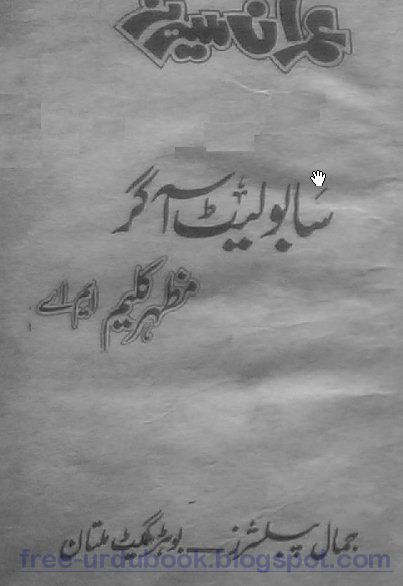 عمران سیریز
سابولیٹ آگر
مظہر کلیم ایم اے
جمال پبلشرز ــ بوہڑ گیٹ ملتان
free-urdubook.blogspot.com